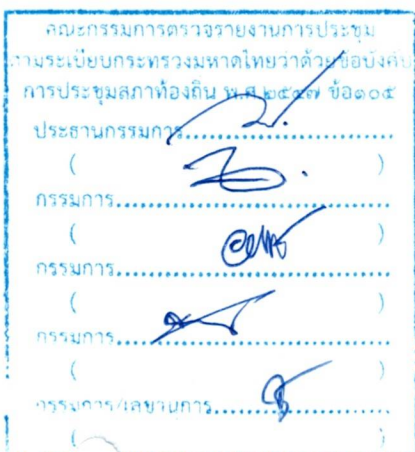 คณะกรรมการตรวจรายงานการประชุม
ตามระเบียบกระทรวงมหาดไทยว่าด้วยข้อบังคับ
การประชุมสภาท้องถิ่น พ.ศ.๒๕๔๗ ข้อ๑๐๕
ประธานกรรมการ..................
( )
กรรมการ..................
( )
กรรมการ..................
( )
กรรมการ..................
( )
กรรมการ/เลขานุการ..................
( )